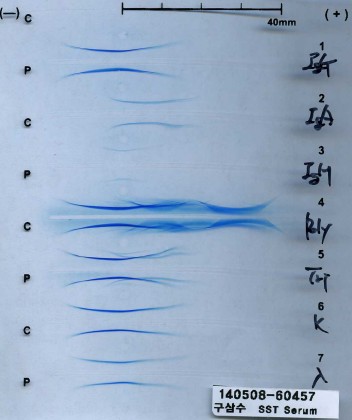 (—) C 40mm (+)
1
P IgG
2
C IgA
3
P IgM
4
C Poly
5
P
6
C K
7
P λ
140508-60457
구삼수 SST Serum